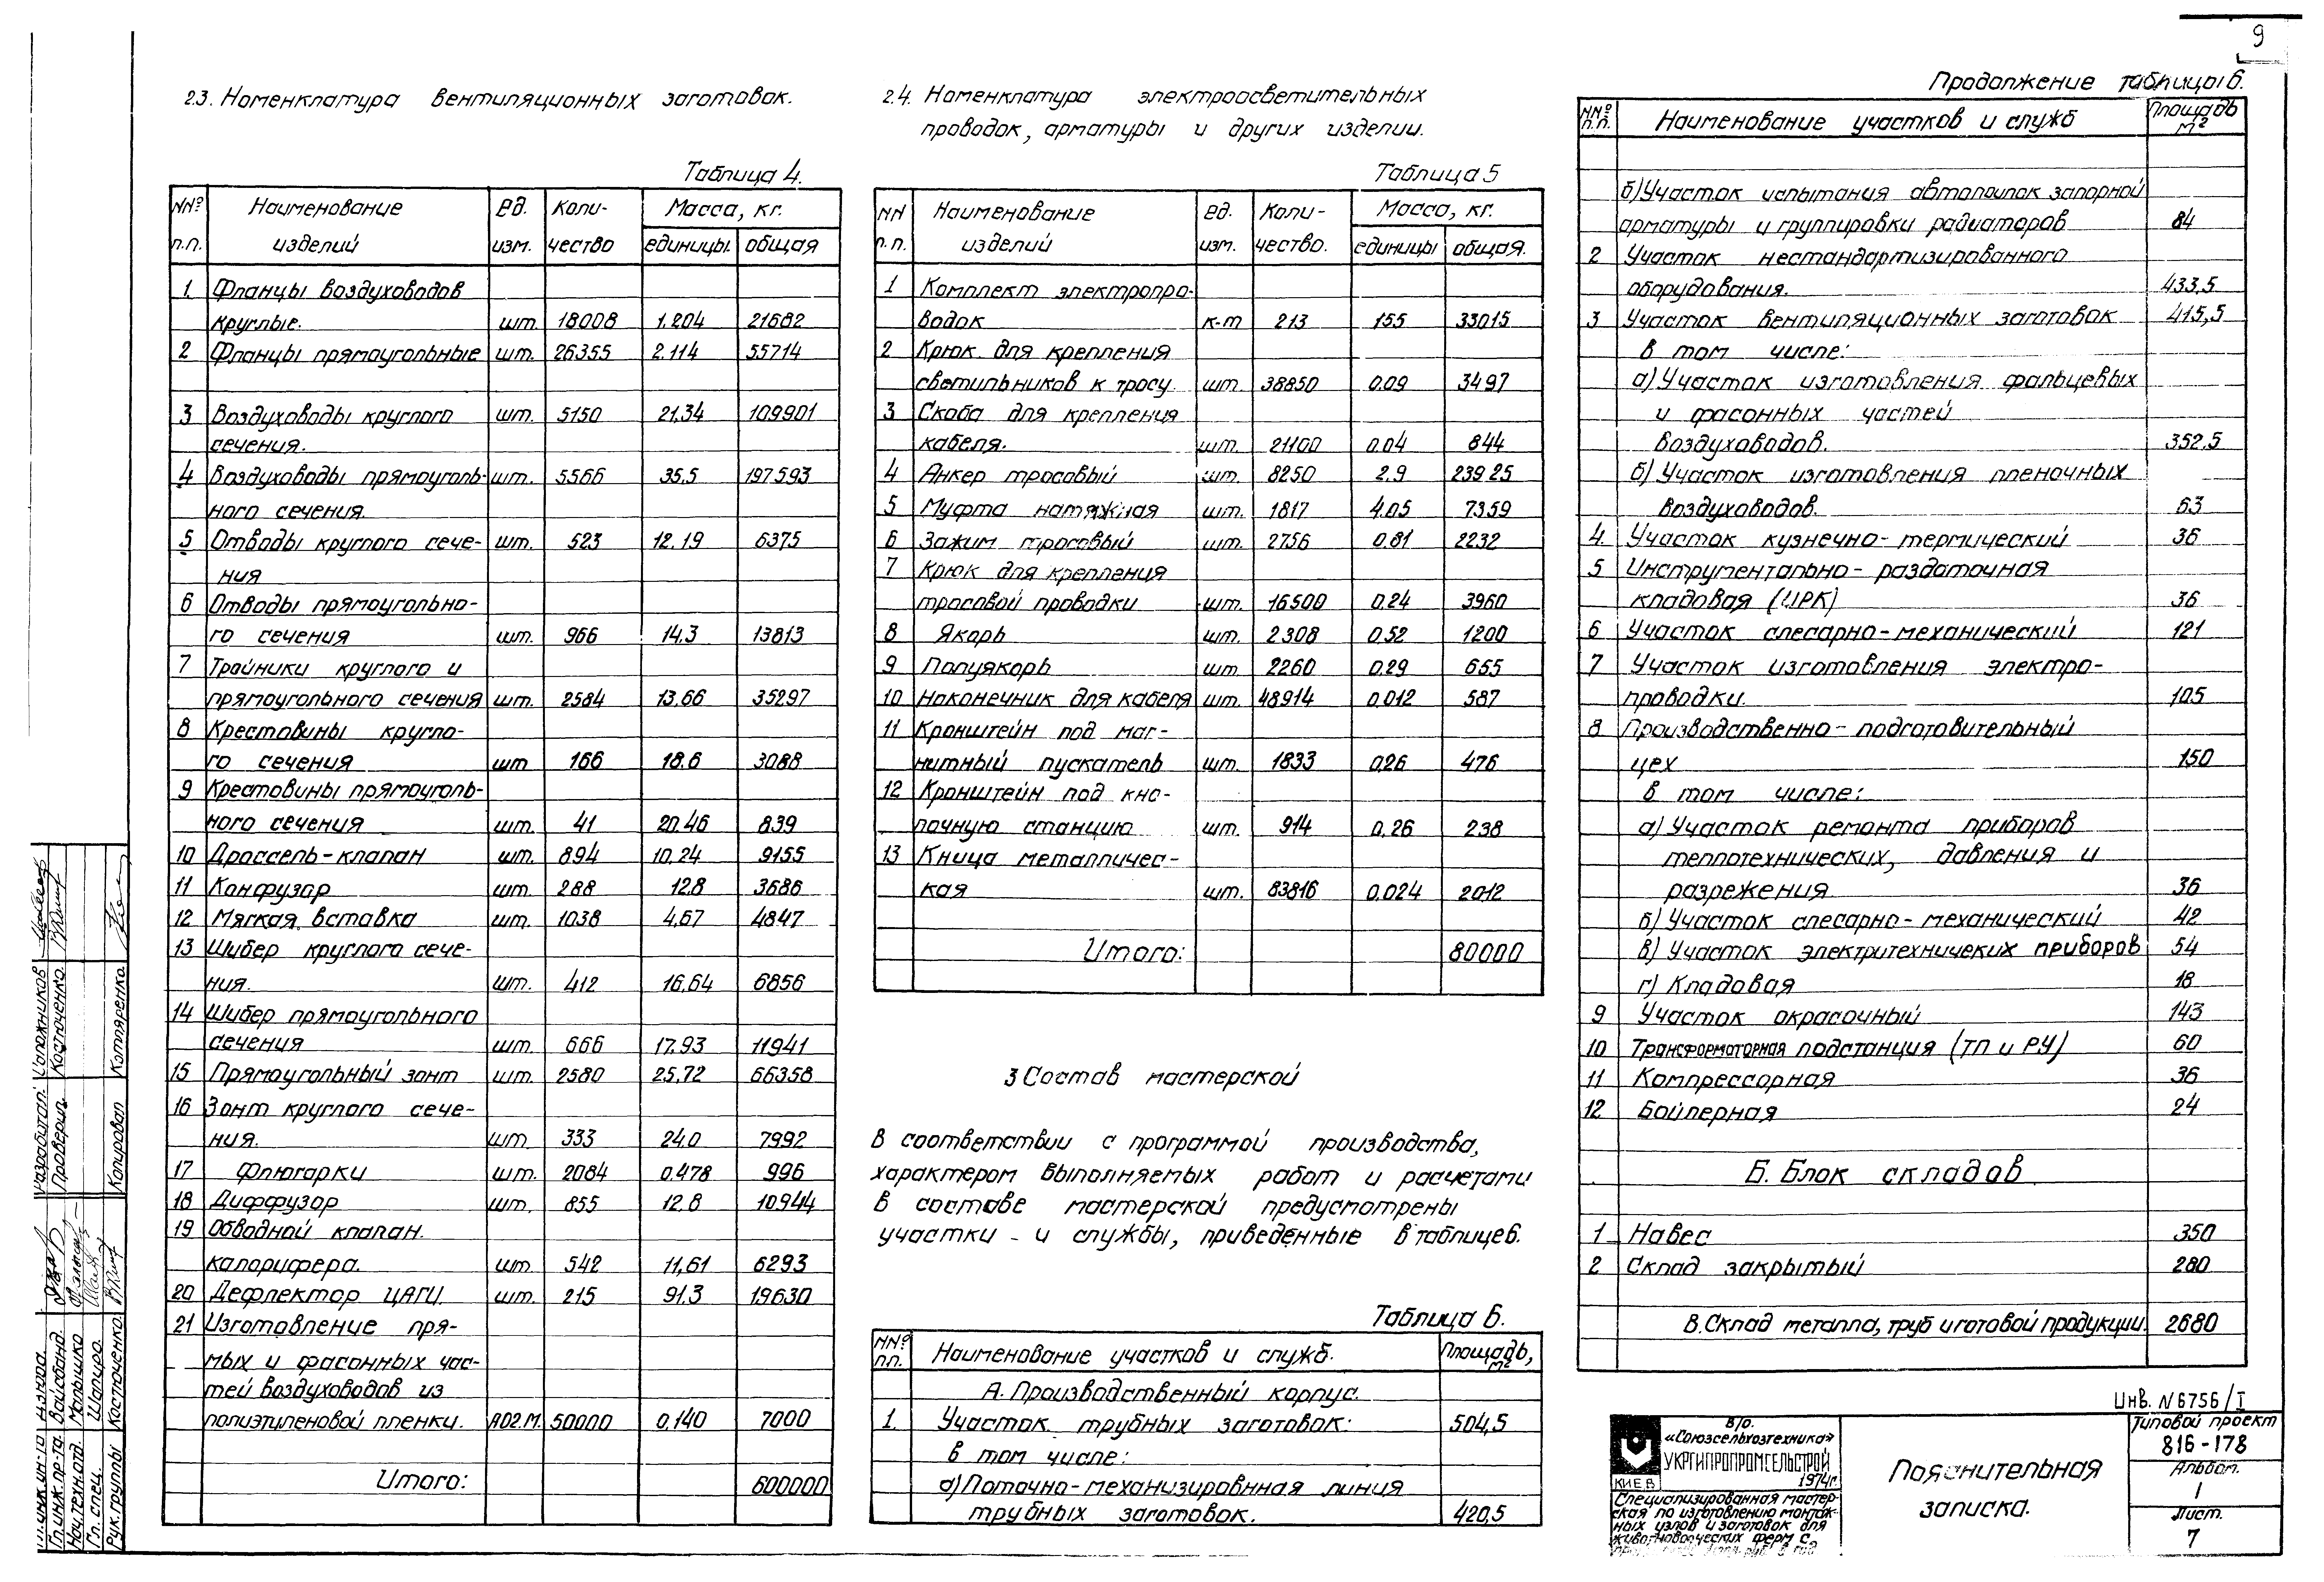 9
2.3. Номенклатура вентиляционных заготовок.
Таблица 4.
NNº п.п. Наименование изделий ед. изм. Коли-чество Масса, кг. единицы общая
1 Фланцы воздуховодов
круглые. шт. 18008 1.204 21682
2 Фланцы прямоугольные шт. 26355 2.114 55714
3 Воздуховоды круглого шт. 5150 21,34 109901
сечения.
4 Воздуховоды прямоуголь- шт. 5566 35,5 197593
ного сечения.
5 Отводы круглого сече- шт. 523 12.19 6375
ния
6 Отводы прямоугольно-
го сечения шт. 966 14.3 13813
7 Тройники круглого и
прямоугольного сечения шт. 2584 13.66 35297
8 Крестовины кругло-
го сечения шт 166 18.6 3088
9 Крестовины прямоуголь-
ного сечения шт. 41 20.46 839
10 Дроссель-клапан шт. 894 10,24 9155
11 Конфузор шт. 288 12.8 3686
12 Мягкая вставка шт. 1038 4,67 4847
13 Шибер круглого сече-
ния. шт. 412 16,64 6856
14 Шибер прямоугольного
сечения шт. 666 17.93 11941
15 Прямоугольный зонт шт. 2580 25,72 66358
16 Зонт круглого сече-
ния. шт. 333 24.0 7992
17 Флюгарки шт. 2084 0.478 996
18 Диффузор шт. 855 12,8 10944
19 Обводной клапан.
калорифера. шт. 542 11,61 6293
20 Дефлектор ЦАГИ. шт. 215 91.3 19630
21 Изготовление пря-
мых и фасонных час-
тей воздуховодов из
полиэтиленовой пленки. 50000 0,140 7000
Итого: 600000
2.4. Номенклатура электроосветительных
проводок, арматуры и других изделии.
Таблица 5
NN п.п. Наименование изделий ед. изм. Коли-чество. Масса, кг. единицы общая.
1 Комплект электропро-
водок к-т 213 155 33015
2 Крюк для крепления
светильников к тросу шт. 38850 0.09 3497
3 Скоба для крепления
кабеля. шт. 21100 0.04 844
4 Анкер тросовый шт. 8250 2.9 23925
5 Муфта натяжная шт. 1817 4.05 7359
6 Зажим тросовый шт. 2756 0.81 2232
7 Крюк для крепления
тросовой проводки шт. 16500 0.24 3960
8 Якорь шт. 2308 0.52 1200
9 Полуякорь шт. 2260 0.29 655
10 Наконечник для кабеля шт. 48914 0.012 587
11 Кронштейн под маг-
нитный пускатель шт. 1833 0.26 476
12 Кронштейн под кно-
почную станцию шт. 914 0,26 238
13 Кница металличес-
кая шт. 83816 0.024 2012
Итого: 80000
3 Состав мастерской
В соответствии с программой производства,
характером выполняемых работ и расчетами
в составе мастерской предусмотрены
участки и службы, приведенные в таблице 6.
Таблица 6.
NNº п.п. Наименование участков и служб. Площадь, м²
А. Производственный корпус.
1. Участок трубных заготовок: 504,5
в том числе:
а) Поточно-механизировнная линия
трубных заготовок. 420,5
Продолжение таблицы 6.
NNº п.п. Наименование участков и служб Площадь м²
б) Участок испытания автопоилок запорной
арматуры и группировки радиаторов 84
2 Участок нестандартизированного
оборудования. 433,5
3 Участок вентиляционных заготовок 415,5
в том числе:
а) Участок изготовления фальцевых
и фасонных частей
воздуховодов. 352,5
б) Участок изготовления пленочных
воздуховодов. 63
4. Участок кузнечно-термический 36
5 Инструментально-раздаточная
кладовая (ИРК) 36
6 Участок слесарно-механический 121
7 Участок изготовления электро-
проводки. 105
8 Производственно-подготовительный
цех 150
в том числе:
а) Участок ремонта приборов
теплотехнических, давления и
разрежения 36
б) Участок слесарно-механический 42
в) Участок электритехничеких приборов 54
г) Кладовая 18
9 Участок окрасочный 143
10 Трансформаторная подстанция (ТП и РУ) 60
11 Компрессорная 36
12 Бойлерная 24
Б. Блок складов
1 Навес 350
2 Склад закрытый 280
В. Склад металла, труб и готовой продукции. 2680
Инв. N 6756/I
В/о.
«Союзсельхозтехника»
УКРГИПРОПРОМСЕЛЬСТРОЙ
КИЕВ 1974г.
Специализированная мастер-
ская по изготовлению монтаж-
ных узлов и заготовок для
животноводческих ферм с
Пояснительная
записка.
Типовой проект
816-178
Альбом.
1
Лист.
7
Разработал. Сапожников
Проверил. Костюченко.
Копировал Котляренко.
Гл. инж. пр-та. Вайсбанд.
Нач. техн. отд. Малышко
Гл. спец. Шапиро.
Рук. группы Костюченко.